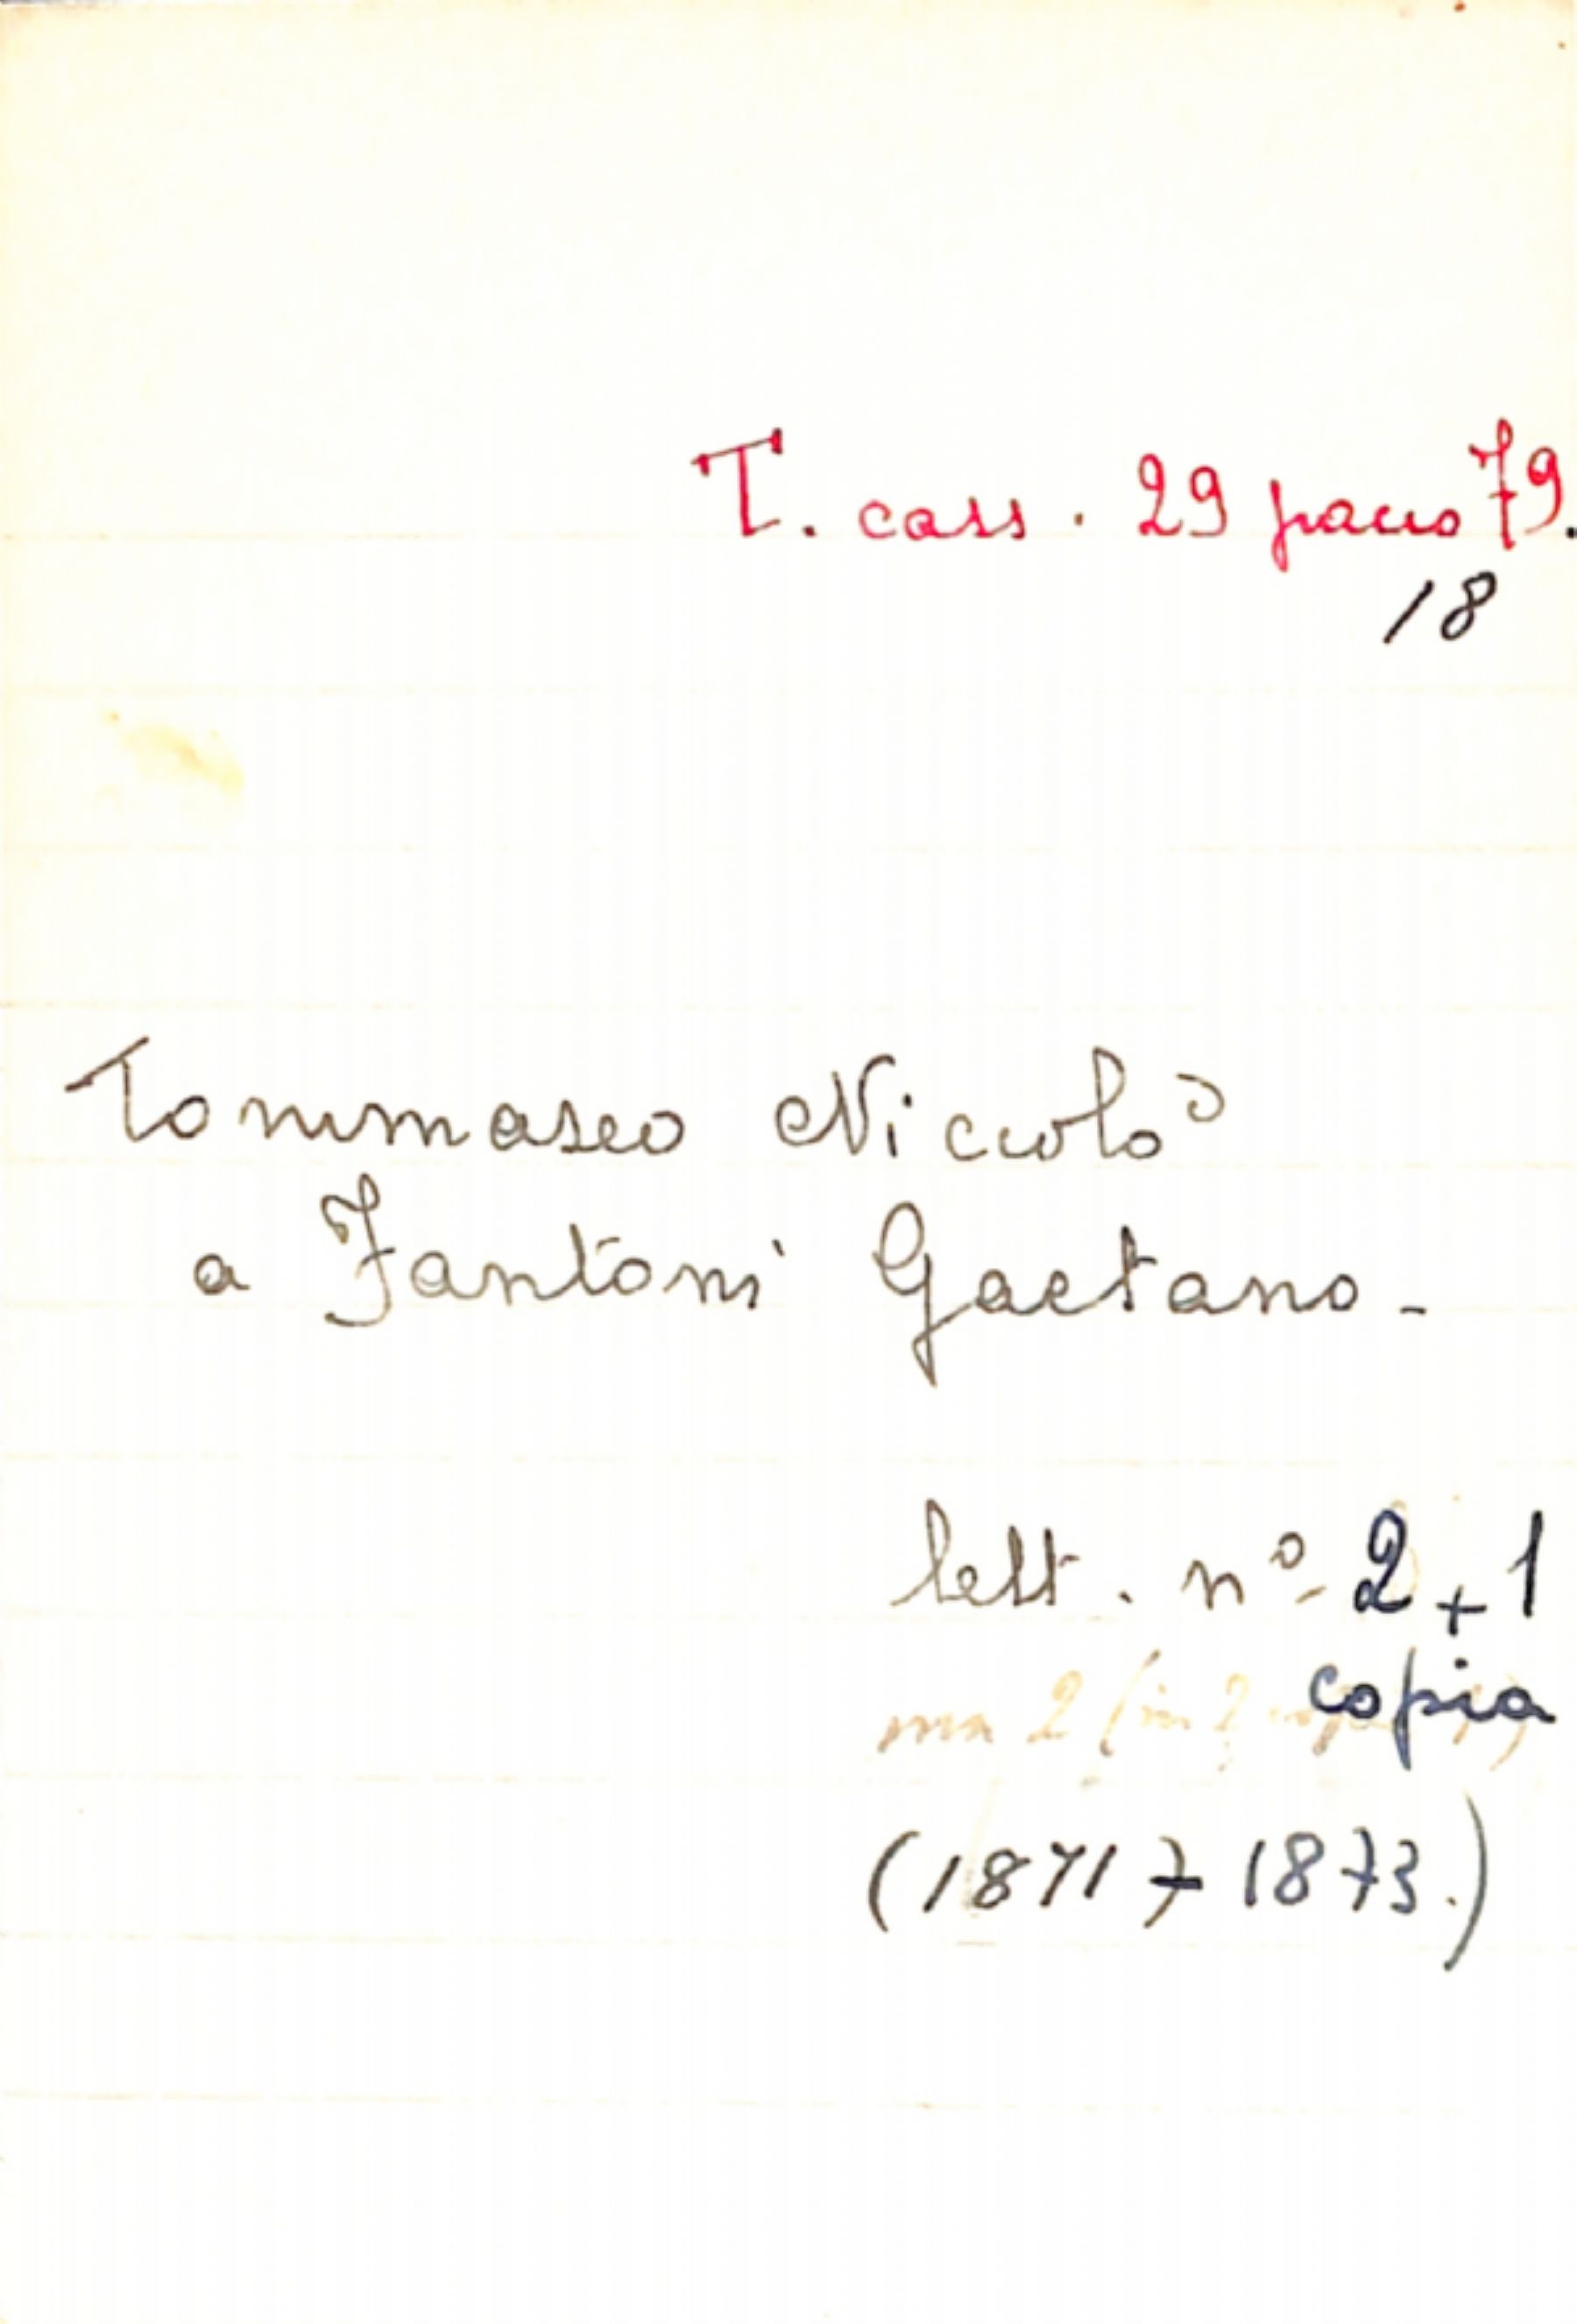 T. cass. 29 pacco 79.
18
Tommaseo Niccolò
a Fantoni Gaetano -
lett. nº 2 + 1
copia
(1871 7 1873.)